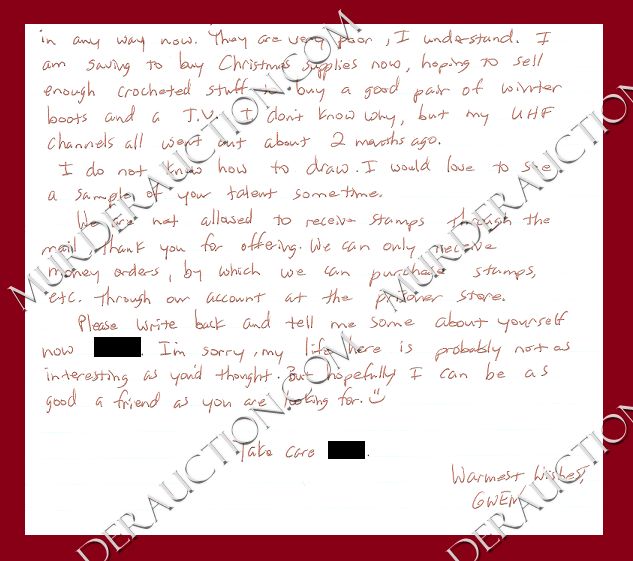 in any way now. They are very poor, I understand. I
am saving to buy Christmas supplies now, hoping to sell
enough crocheted stuff to buy a good pair of winter
boots and a T.V. I don't know why, but my UHF
channels all went out about 2 months ago.
I do not know how to draw. I would love to see
a sample of your talent sometime.
We are not allowed to receive stamps through the
mail. Thank you for offering. We can only receive
money orders, by which we can purchase stamps,
etc. through our account at the prisoner store.
Please write back and tell me some about yourself
now . I'm sorry, my life here is probably not as
interesting as you'd thought. But hopefully I can be as
good a friend as you are looking for.
Take care .
Warmest Wishes,
GWEN
MURDERAUCTION.COM
MURDERAUCTION
DERAUCTION.COM
DERAUCTION